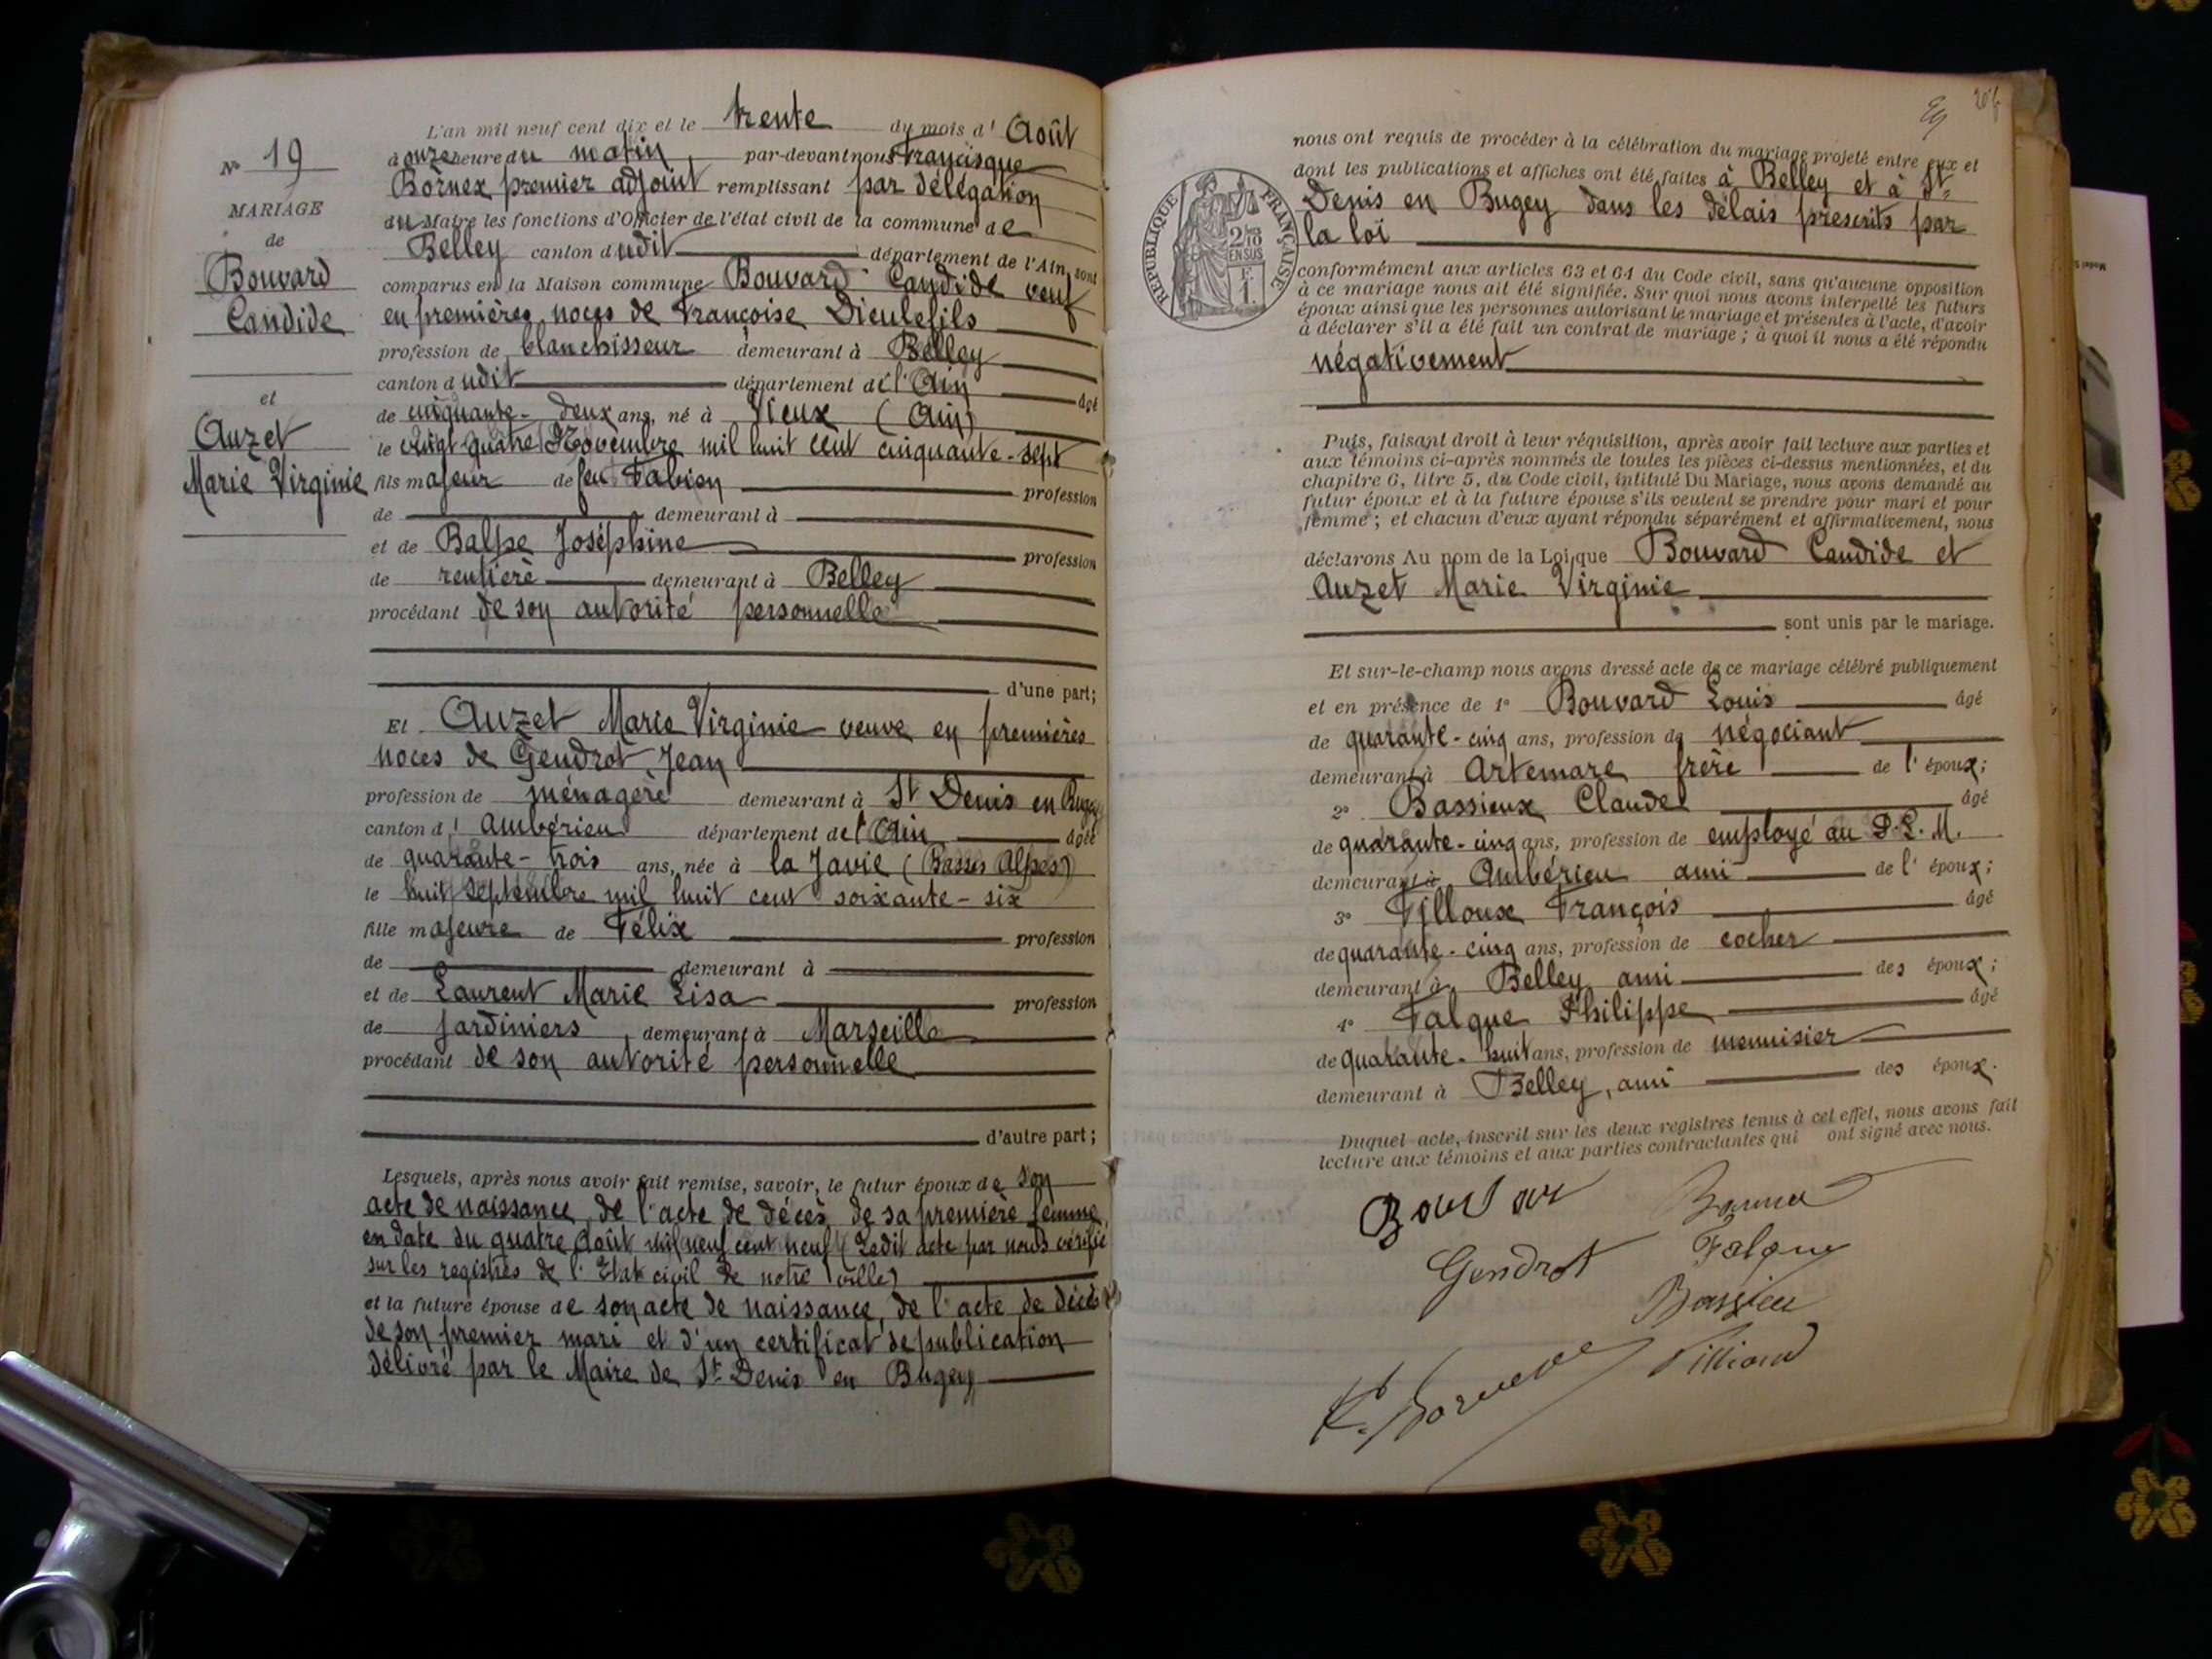 N° 19
MARIAGE
de
Bouvard
Candide
et
Auzet
Marie Virginie
L'an mil neuf cent dix et le trente du mois d'Août
à onze heure du matin, par-devant nous Francisque
Bornex premier adjoint remplissant par délégation
du Maire les fonctions d'Officier de l'état civil de la commune de
Belley canton dudit département de l'Ain, sont
comparus en la Maison commune Bouvard Candide veuf
en premières noces de Françoise Dieulefils
profession de blanchisseur demeurant à Belley
canton dudit département de l'Ain âgé
de cinquante-deux ans, né à Vieux (Ain)
le vingt quatre Novembre mil huit cent cinquante-sept
fils majeur de feu Fabien profession
de demeurant à
et de Balpe Joséphine profession
de rentière demeurant à Belley
procédant de son autorité personnelle
d'une part;
Et Auzet Marie Virginie veuve en premières
noces de Gendrot Jean
profession de ménagère demeurant à St Denis en Bugey
canton d'Ambérieu département de l'Ain âgée
de quarante-trois ans, née à la Javie (Basses Alpes)
le huit Septembre mil huit cent soixante-six
fille majeure de Félix profession
de demeurant à
et de Laurent Marie Lisa profession
de jardiniers demeurant à Marseille
procédant de son autorité personnelle
d'autre part;
Lesquels, après nous avoir fait remise, savoir, le futur époux de son
acte de naissance, de l'acte de décès de sa première femme,
en date du quatre Août mil neuf cent neuf (Ledit acte par nous vérifié
sur les registres de l'Etat civil de notre ville)
et la future épouse de son acte de naissance, de l'acte de décès
de son premier mari et d'un certificat de publication
délivré par le Maire de St Denis en Bugey
nous ont requis de procéder à la célébration du mariage projeté entre eux et
dont les publications et affiches ont été faites à Belley et à St
Denis en Bugey dans les délais prescrits par
la loi
RÉPUBLIQUE FRANÇAISE
2/10
EN SUS
F.
1.
conformément aux articles 63 et 64 du Code civil, sans qu'aucune opposition
à ce mariage nous ait été signifiée. Sur quoi nous avons interpellé les futurs
époux ainsi que les personnes autorisant le mariage et présentes à l'acte, d'avoir
à déclarer s'il a été fait un contrat de mariage; à quoi il nous a été répondu
négativement
Puis, faisant droit à leur réquisition, après avoir fait lecture aux parties et
aux témoins ci-après nommés de toutes les pièces ci-dessus mentionnées, et du
chapitre 6, titre 5, du Code civil, intitulé Du Mariage, nous avons demandé au
futur époux et à la future épouse s'ils veulent se prendre pour mari et pour
femme; et chacun d'eux ayant répondu séparément et affirmativement, nous
déclarons Au nom de la Loi, que Bouvard Candide et
Auzet Marie Virginie
sont unis par le mariage.
Et sur-le-champ nous avons dressé acte de ce mariage célébré publiquement
et en présence de 1° Bouvard Louis âgé
de quarante-cinq ans, profession de négociant
demeurant à Artemare frère de l'époux;
2° Bassieux Claude âgé
de quarante-cinq ans, profession de employé au P.L.M.
demeurant à Ambérieu ami de l'époux;
3° Filloux François âgé
de quarante-cinq ans, profession de cocher
demeurant à Belley ami des époux;
4° Falque Philippe âgé
de quarante-huit ans, profession de menuisier
demeurant à Belley, ami des époux.
Duquel acte, inscrit sur les deux registres tenus à cet effet, nous avons fait
lecture aux témoins et aux parties contractantes qui ont signé avec nous.
Gendrot
Falque
Bassieu